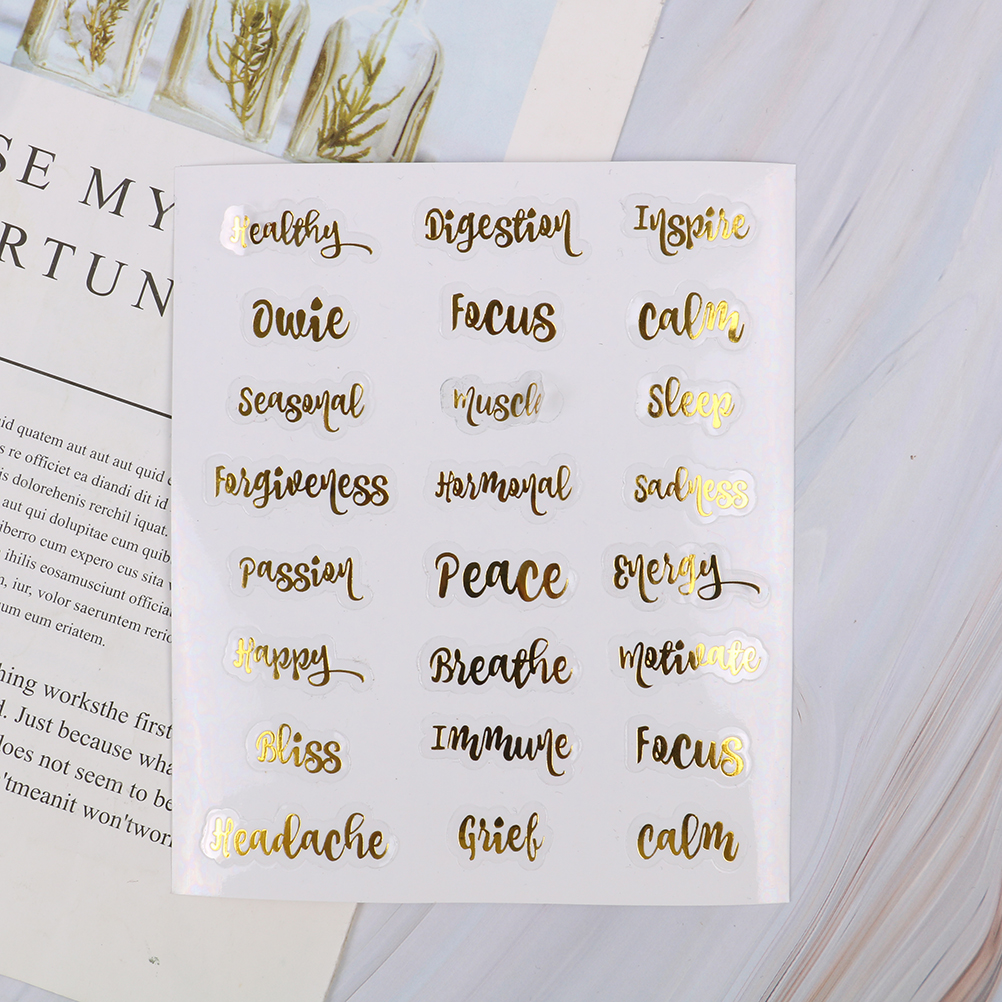 SE MY
RTUN
uid quatem aut aut aut quid
s re officiet ea diandi dit id
is dolorehenis rerchil iquat.
aut qui dolupitae cum quib
iberro cum expero cus sita
ihilis eosamusciunt officia
m, iur, volor saeruntem reric
um eum eriatem.
hing worksthe first
d. Just because wha
does not seem to be
n'tmeanit won'twor
Healthy Digestion Inspire
Owie Focus Calm
Seasonal Muscle Sleep
Forgiveness Hormonal Sadness
Passion Peace Energy
Happy Breathe Motivate
Bliss Immune Focus
Headache Grief Calm